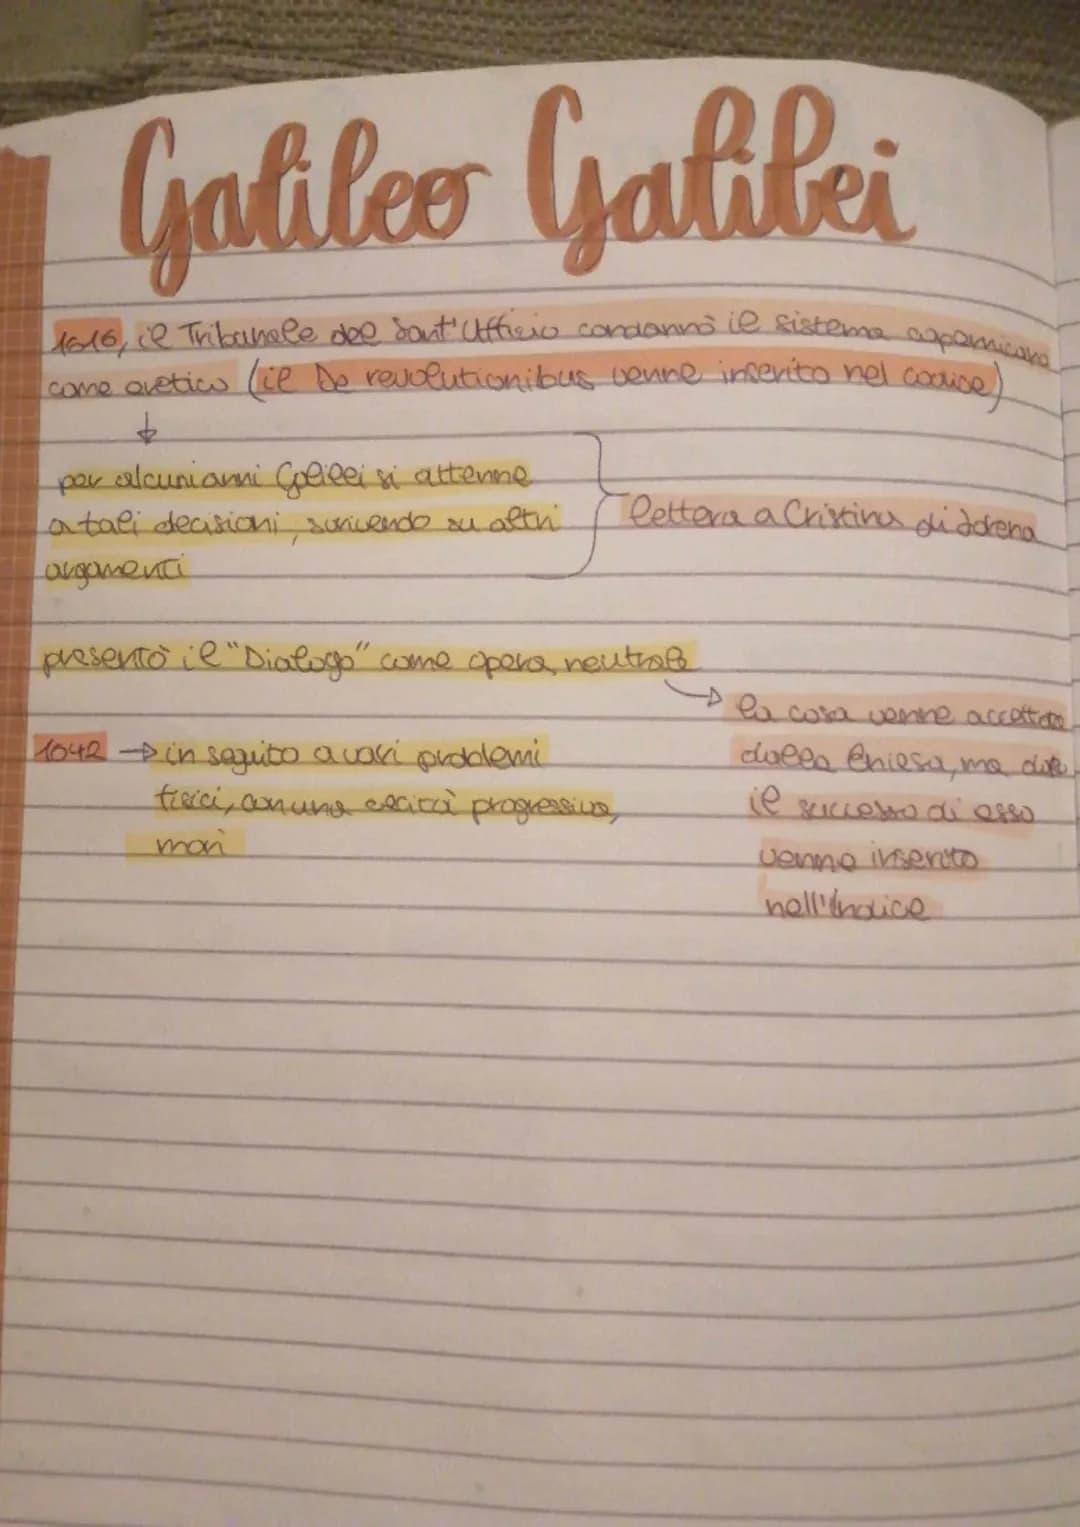 Galileo Galilei
1616, il Tribunale del Sant'Uffizio condannò il sistema copernicano
come eretico (il De revolutionibus venne inserito nel codice)
per alcuni anni Galilei si attenne
a tali decisioni, scrivendo su altri
argomenti
lettera a Cristina di Lorena
presentò il "Dialogo" come opera neutrale
la cosa venne accettata
dalla Chiesa, ma
il successo di esso
venne inserito
nell'Indice
1642 → in seguito a vari problemi
fisici, con una cecità progressiva,
morì